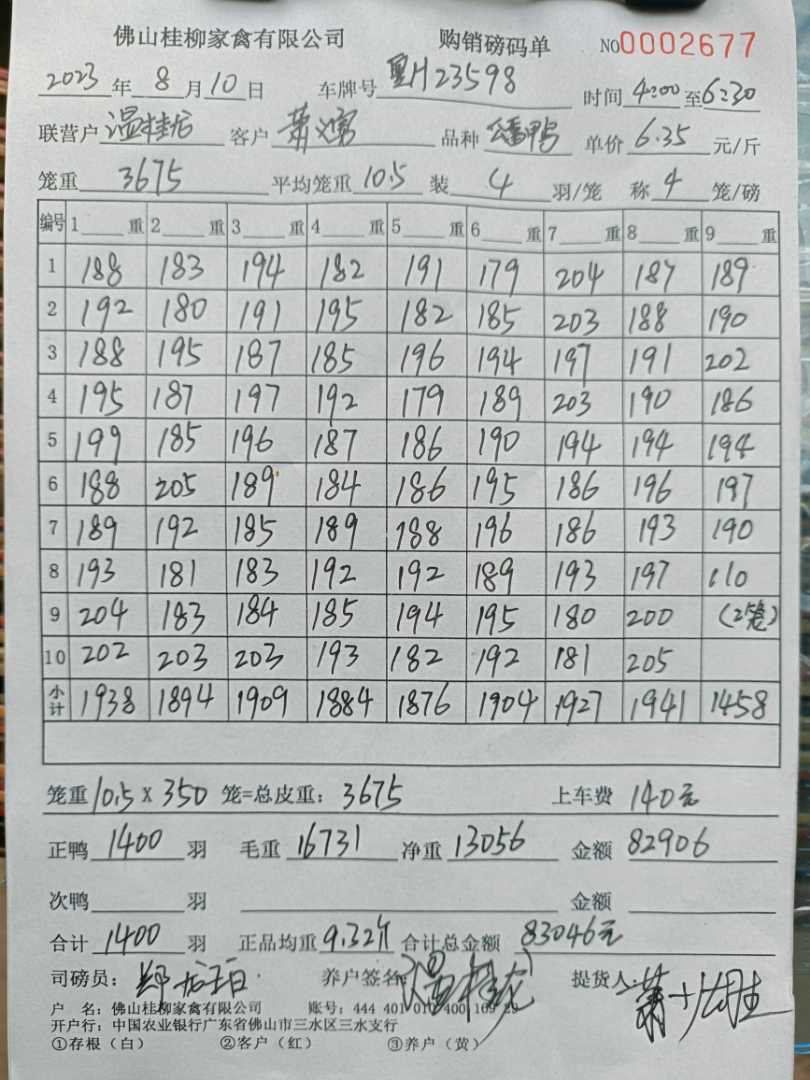 佛山桂柳家禽有限公司 购销磅码单 NO0002677
2023年8月10日 车牌号 H23598 时间4:00至6:30
联营户 温桂龙 客户 萧 品种 番鸭 单价 6.35 元/斤
笼重 3675 平均笼重 10.5 装 4 羽/笼 称 4 笼/磅
编号 1 重 2 重 3 重 4 重 5 重 6 重 7 重 8 重 9 重
1 188 183 194 182 191 179 204 187 189
2 192 180 191 195 182 185 203 188 190
3 188 195 187 185 196 194 197 191 202
4 195 187 197 192 179 189 203 190 186
5 199 185 196 187 186 190 194 194 194
6 188 205 189 184 186 195 186 196 197
7 189 192 185 189 188 196 186 193 190
8 193 181 183 192 192 189 193 197 110
9 204 183 184 185 194 195 180 200 (2笼)
10 202 203 203 193 182 192 181 205
小计 1938 1894 1909 1884 1876 1904 1927 1941 1458
笼重 10.5 x 350 笼=总皮重: 3675 上车费 140元
正鸭 1400 羽 毛重 16731 净重 13056 金额 82906
次鸭 羽 金额
合计 1400 羽 正品均重 9.32斤 合计总金额 83046元
司磅员: 养户签名 温桂龙 提货人: 萧
户 名: 佛山桂柳家禽有限公司 账号: 444 401 010 400 169 29
开户行: 中国农业银行广东省佛山市三水区三水支行
①存根(白) ②客户(红) ③养户(黄)